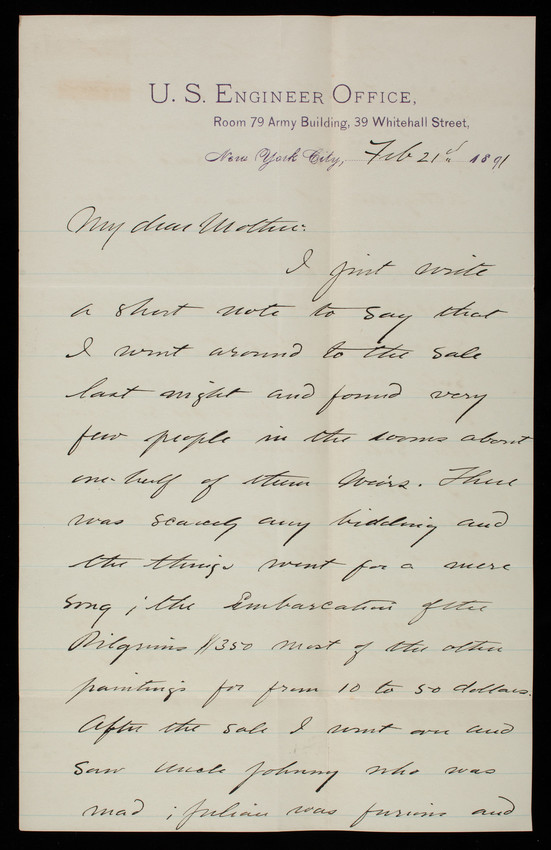 U. S. ENGINEER OFFICE,
Room 79 Army Building, 39 Whitehall Street,
New York City, Feb 21st 1891
My dear Mother:
I just write
a short note to say that
I went around to the sale
last night and found very
few people in the rooms about
one-half of them Weirs. There
was scarcely any bidding and
the things went for a mere
song; the Embarcation of the
Pilgrims $1350 most of the other
paintings for from 10 to 50 dollars.
After the sale I went over and
saw Uncle Johnny who was
mad; Julian was furious and